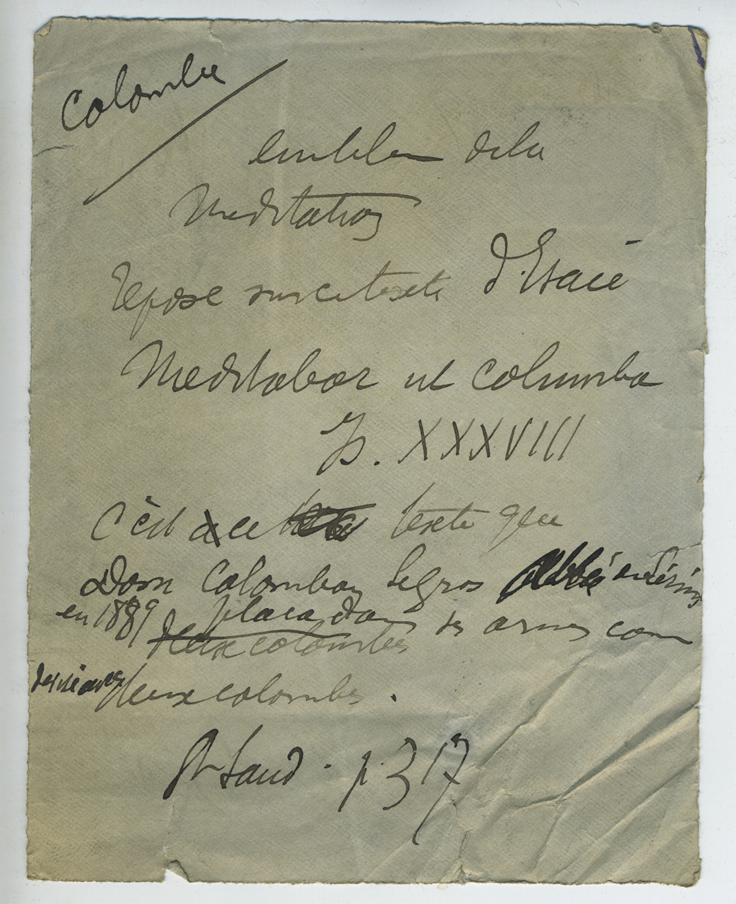 Colombe
emblem de la
Meditation
repose sur ce texte d'Isaïe
Meditabor ut columba
Is. XXXVIII
C'est à ce texte que
Dom Colomban Legros Abbé
en 1889 plaça dans ses armes com
deux colombes
deux colombes.
p. 317